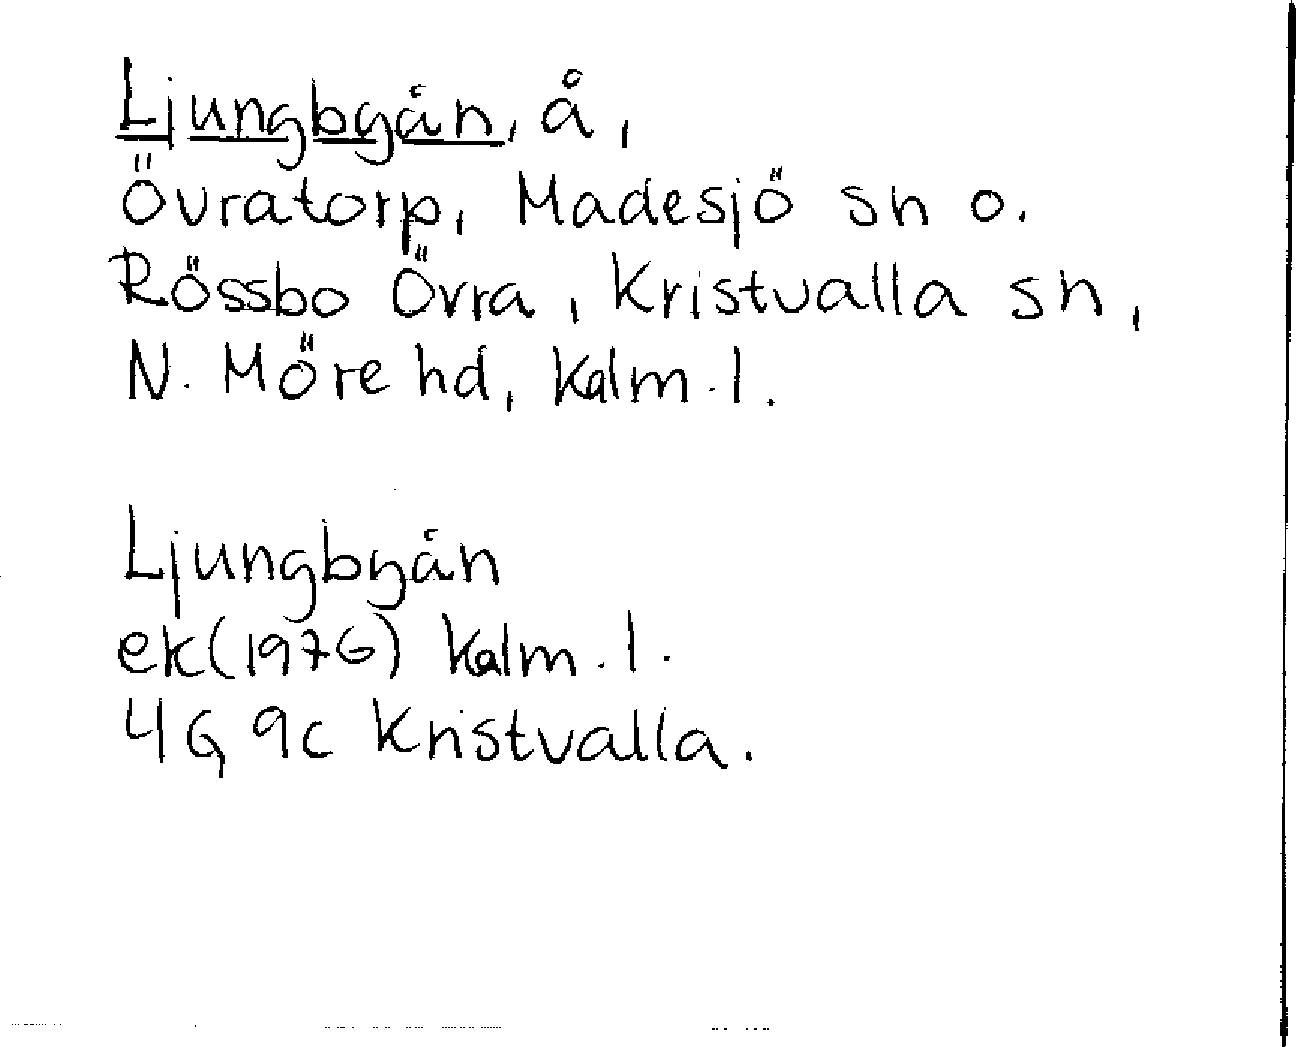 Ljungbyån, å,
Övratorp, Madesjö sn o.
Rössbo Övra, Kristvalla sn,
N. Möre hd, Kalm. l.
Ljungbyån
ek (1976) Kalm. l.
4G 9c Kristvalla.